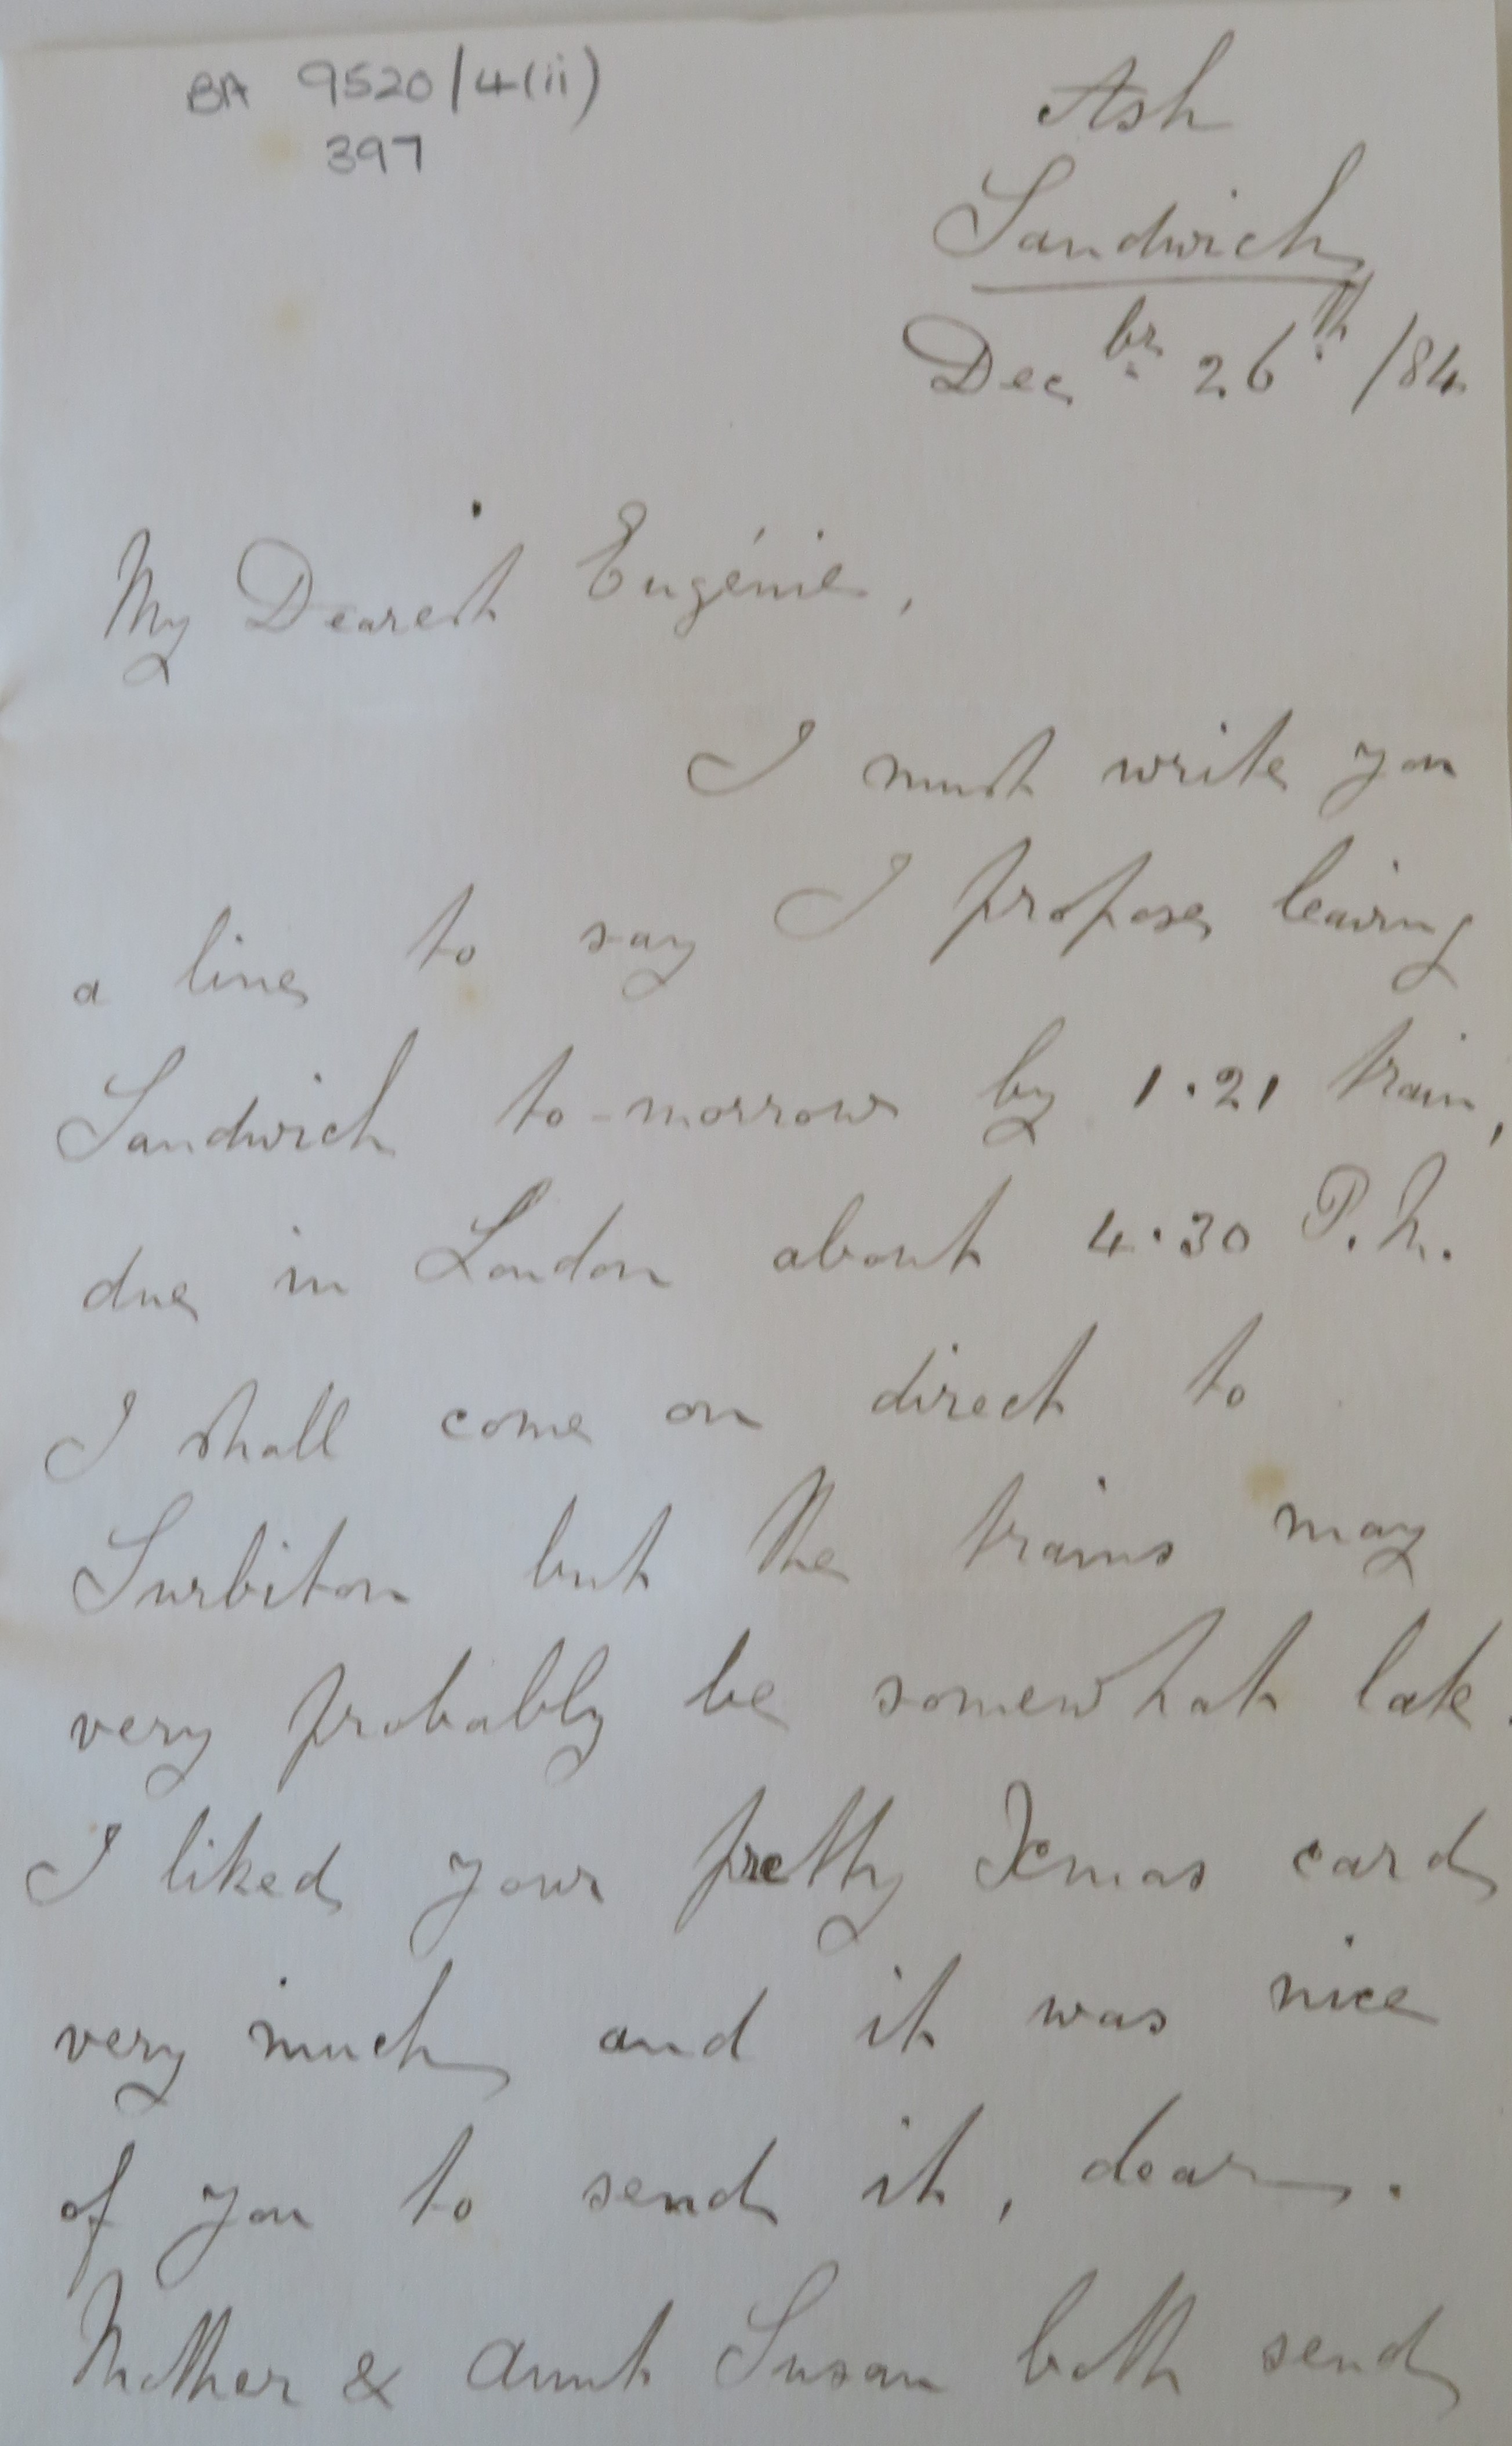 BA 9520/4(ii)
397
Ash
Sandwich
Decbr 26th /84
My Dearest Eugénie,
I must write you
a line to say I propose leaving
Sandwich to-morrow by 1.21 train,
due in London about 4.30 P.M.
I shall come on direct to
Surbiton but the trains may
very probably be somewhat late.
I liked your pretty Xmas card
very much and it was nice
of you to send it, dear.
Mother & Aunt Susan both send